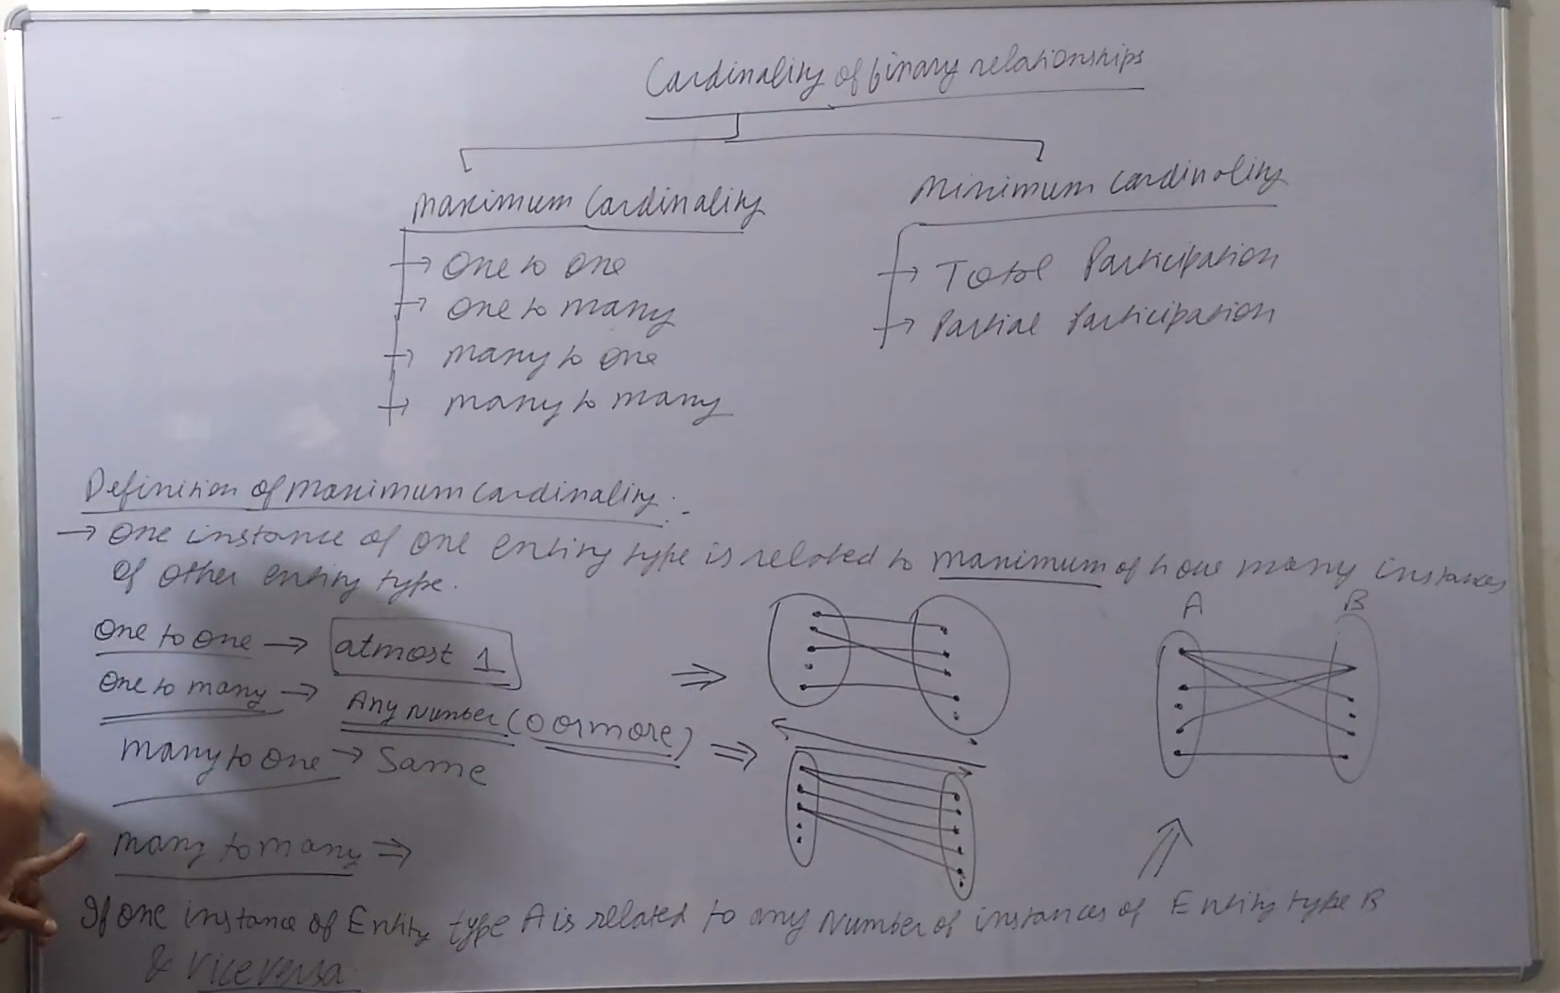 Cardinality of binary relationships
Maximum Cardinality
→ One to one
→ One to many
→ many to one
→ many to many
Minimum cardinality
→ Total Participation
→ Partial Participation
Definition of maximum cardinality :-
→ One instance of one entity type is related to maximum of how many instances
of other entity type.
One to one → atmost 1
One to many → Any Number (0 or more) ⇒
many to one → Same
⇒
A B
many to many ⇒
If one instance of Entity type A is related to any Number of instances of Entity type B
& vice versa.